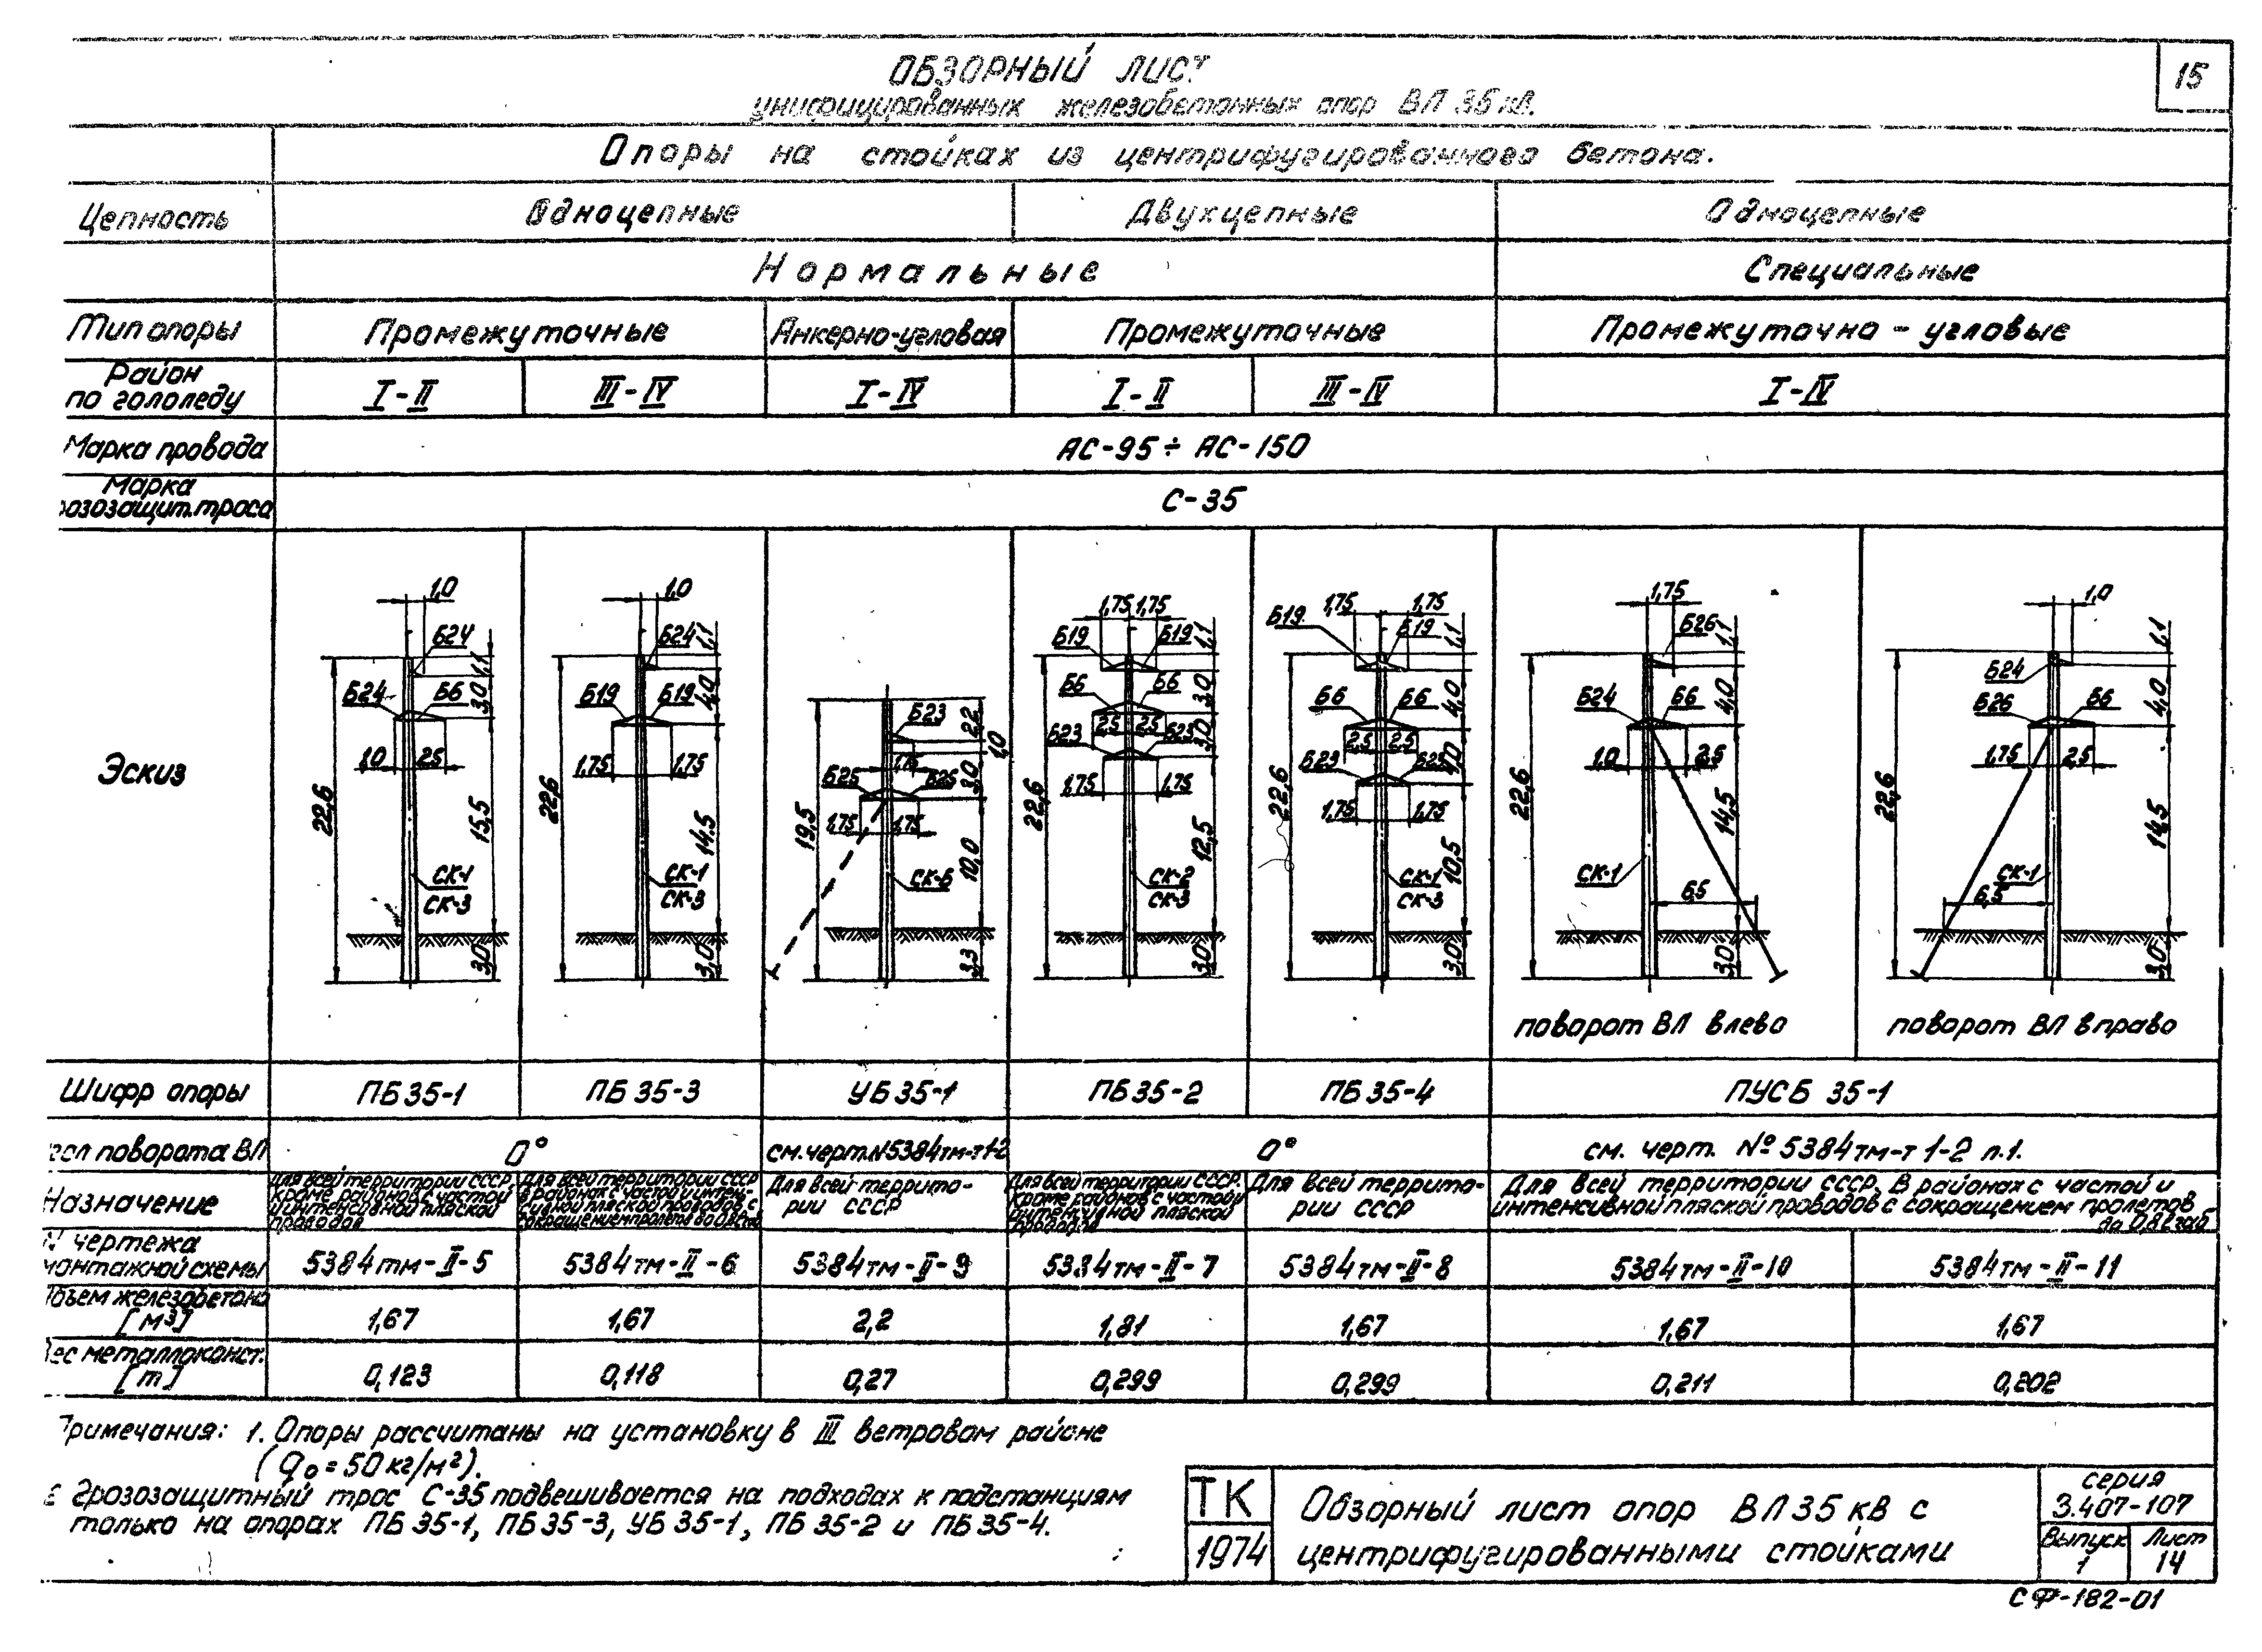 15
ОБЗОРНЫЙ ЛИСТ
унифицированных железобетонных опор ВЛ 35 кВ.
Опоры на стойках из центрифугированного бетона.
Цепность Одноцепные Двухцепные Одноцепные
Нормальные Специальные
Тип опоры Промежуточные Анкерно-угловая Промежуточные Промежуточно - угловые
Район
по гололеду I-II III-IV I-IV I-II III-IV I-IV
Марка провода АС-95÷АС-150
Марка
розозащит.троса С-35
Эскиз
1,0 Б24 1,1 3,0 Б24 Б6 1,0 2,5 22,6 15,5 СК-1 СК-3 3,0
1,0 Б24 1,1 4,0 Б19 Б19 1,75 1,75 22,6 14,5 СК-1 СК-3 3,0
Б23 2,2 1,0 1,75 3,0 Б25 Б25 1,75 1,75 19,5 10,0 3,3
1,75 1,75 Б19 Б19 1,1 3,0 Б6 Б6 2,5 2,5 3,0 Б23 Б23 1,75 1,75 22,6 12,5 СК-2 СК-3 3,0
1,75 1,75 Б19 Б19 1,1 4,0 Б6 Б6 2,5 2,5 Б23 1,75 1,75 22,6 10,5 СК-1 СК-3 3,0
1,75 Б26 1,1 4,0 Б24 Б6 1,0 2,5 22,6 14,5 СК-1 6,5 3,0
1,0 1,1 Б24 4,0 Б26 Б6 1,75 2,5 22,6 14,5 СК-1 6,5 3,0
поворот ВЛ влево поворот ВЛ вправо
Шифр опоры ПБ35-1 ПБ 35-3 УБ 35-1 ПБ 35-2 ПБ 35-4 ПУСБ 35-1
гол поворота ВЛ 0° см.черт.N5384тм-т1-2 0° см. черт. № 5384тм-т 1-2 л.1.
Назначение
Для всей территории СССР,
кроме районов с частой
и интенсивной пляской
проводов
Для всей территории СССР
в районах с частой и интен-
сивной пляской проводов с
сокращением пролетов до
Для всей террито-
рии СССР
Для всей территории СССР.
кроме районов с частой и
интенсивной пляской
проводов
Для всей террито-
рии СССР
Для всей территории СССР. В районах с частой и
интенсивной пляской проводов с сокращением пролетов
до 0,8
N чертежа
монтажной схемы 5384тм-II-5 5384тм-II-6 5384тм-II-9 5384тм-II-7 5384тм-II-8 5384тм-II-10 5384тм-II-11
бъем железобетона
[м³] 1,67 1,67 2,2 1,81 1,67 1,67 1,67
ес металлоконст.
[т] 0,123 0,118 0,27 0,299 0,299 0,211 0,202
Примечания: 1. Опоры рассчитаны на установку в III ветровом районе
(q₀=50кг/м²).
2 Грозозащитный трос С-35 подвешивается на подходах к подстанциям
только на опорах ПБ 35-1, ПБ35-3, УБ 35-1, ПБ 35-2 и ПБ35-4.
ТК
1974
Обзорный лист опор ВЛ 35 кВ с
центрифугированными стойками
серия
3.407-107
Выпуск Лист
1 14
СФ-182-01